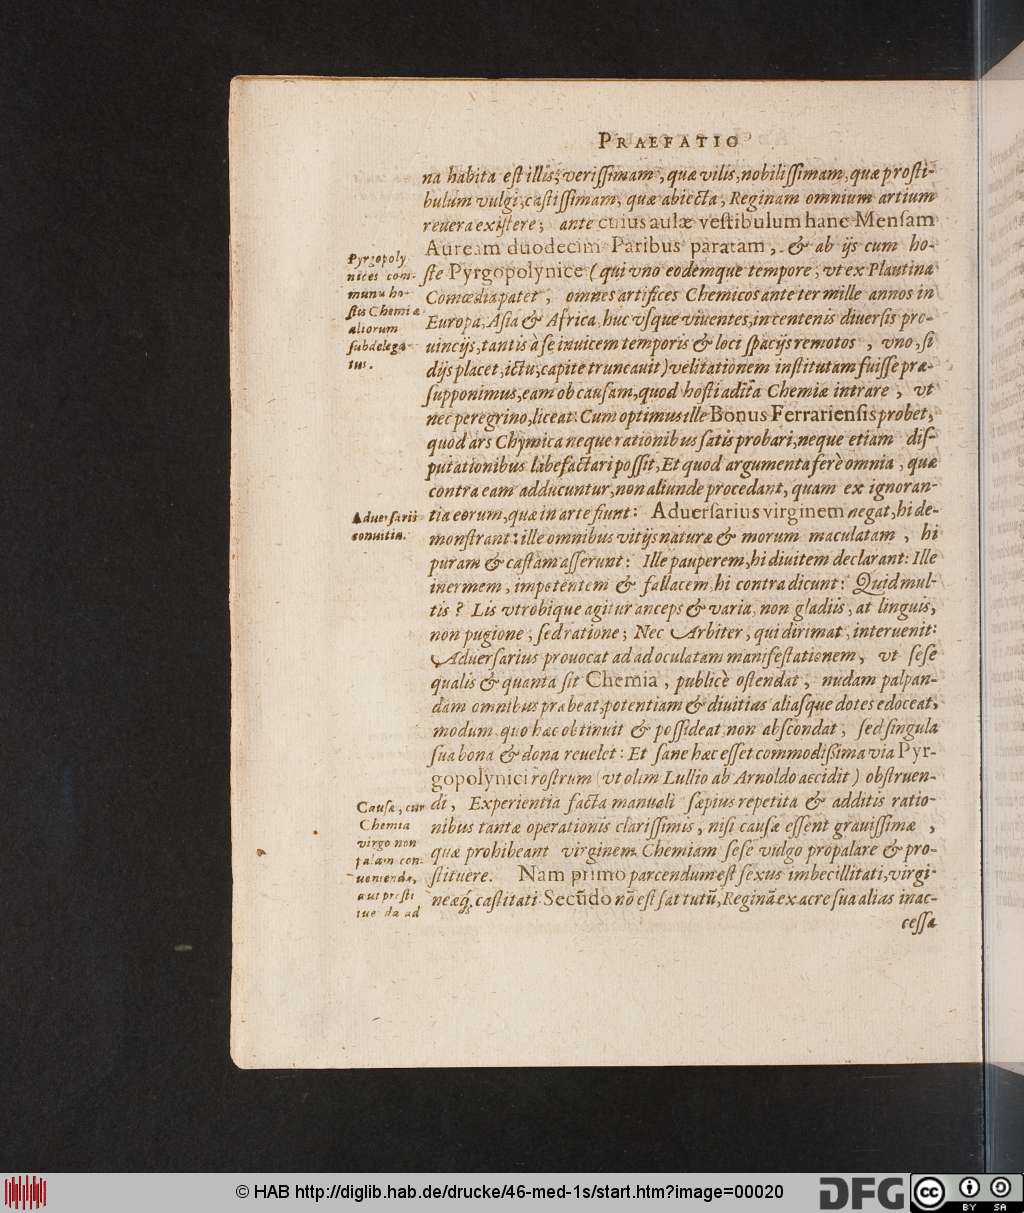 PRAEFATIO
na habita est illis; verissimam, quæ vilis, nobilissimam, quæ prosti-
bulum vulgi, castissimam, quæ abiecta, Reginam omnium artium
reuera existere; ante cuius aulæ vestibulum hanc Mensam
Auream duodecim Paribus paratam, & ab ijs cum ho-
ste Pyrgopolynice (qui vno eodemque tempore, vt ex Plautina
Comœdia patet, omnes artifices Chemicos ante ter mille annos in
Europa, Asia & Africa huc vsque viuentes, in centenis diuersis pro-
uincijs, tantis à se inuicem temporis & loci spacijs remotos, vno, si
dijs placet, ictu, capite truncauit) velitationem institutam fuisse præ-
supponimus, eam ob causam, quod hosti adita Chemiæ intrare, vt
nec peregrino, liceat: Cum optimus ille Bonus Ferrariensis probet,
quod ars Chymica neque rationibus satis probari, neque etiam dis-
putationibus labefactari possit, Et quod argumenta ferè omnia, quæ
contra eam adducuntur, non aliunde procedant, quam ex ignoran-
tia eorum, quæ in arte fiunt: Aduersarius virginem negat, hi de-
monstrant: ille omnibus vitijs naturæ & morum maculatam, hi
puram & castam asserunt: Ille pauperem, hi diuitem declarant: Ille
inermem, impotentem & fallacem, hi contra dicunt: Quid mul-
tis? Lis vtrobique agitur anceps & varia, non gladiis, at linguis,
non pugione, sed ratione; Nec Arbiter, qui dirimat, interuenit:
Aduersarius prouocat ad ad oculatam manifestationem, vt sese
qualis & quanta sit Chemia, publicè ostendat, nudam palpan-
dam omnibus præbeat, potentiam & diuitias aliasque dotes edoceat,
modum, quo hæc obtinuit & possideat non abscondat, sed singula
sua bona & dona reuelet: Et sane hæc esset commodissima via Pyr-
gopolynici rostrum (vt olim Lullio ab Arnoldo accidit) obstruen-
di, Experientia facta manuali sæpius repetita & additis ratio-
nibus tantæ operationis clarissimis, nisi causæ essent grauissimæ,
quæ prohibeant virginem Chemiam sese vulgo propalare & pro-
stituere. Nam primo parcendum est sexus imbecillitati, virgi-
neæq; castitati Secũdo nõ est sat tutũ, Reginã ex acre sua alias inac-
cessa
Pyrgopoly
nices com-
munis ho-
stis Chemiæ
aliorum
subdelega-
tus.
Aduersarii
conuitia.
Causæ, cur
Chemia
virgo non
palam con-
uenienda,
aut prosti
tuenda ad
© HAB http://diglib.hab.de/drucke/46-med-1s/start.htm?image=00020
DFG
cc
BY SA